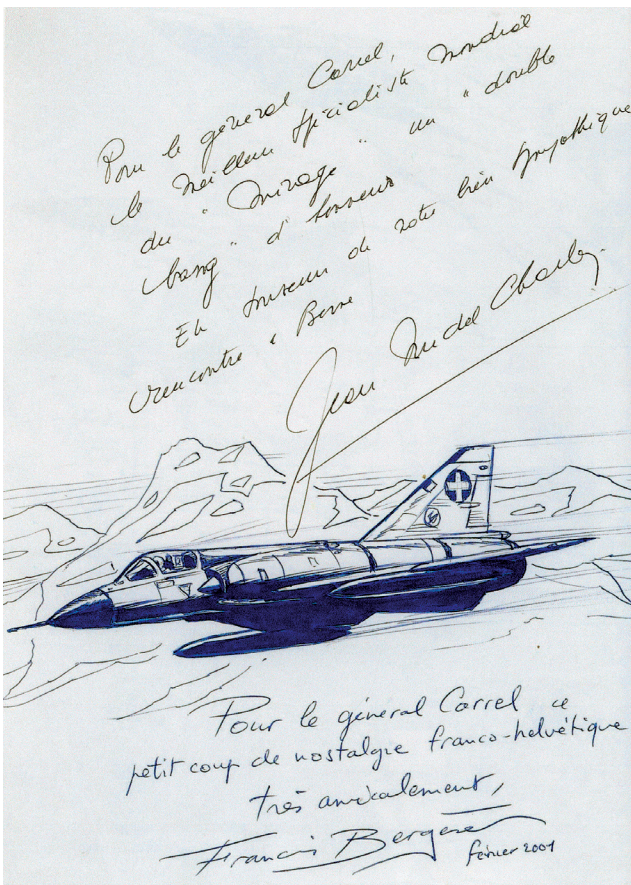 Pour le général Carrel,
le meilleur spécialiste mondial
du "Mirage" un "double
bang" d'honneur
En souvenir de notre très sympathique
rencontre à Berne
Jean Michel Charlier
Pour le général Carrel ce
petit coup de nostalgie franco-helvétique
très amicalement,
Francis Bergèse
février 2001